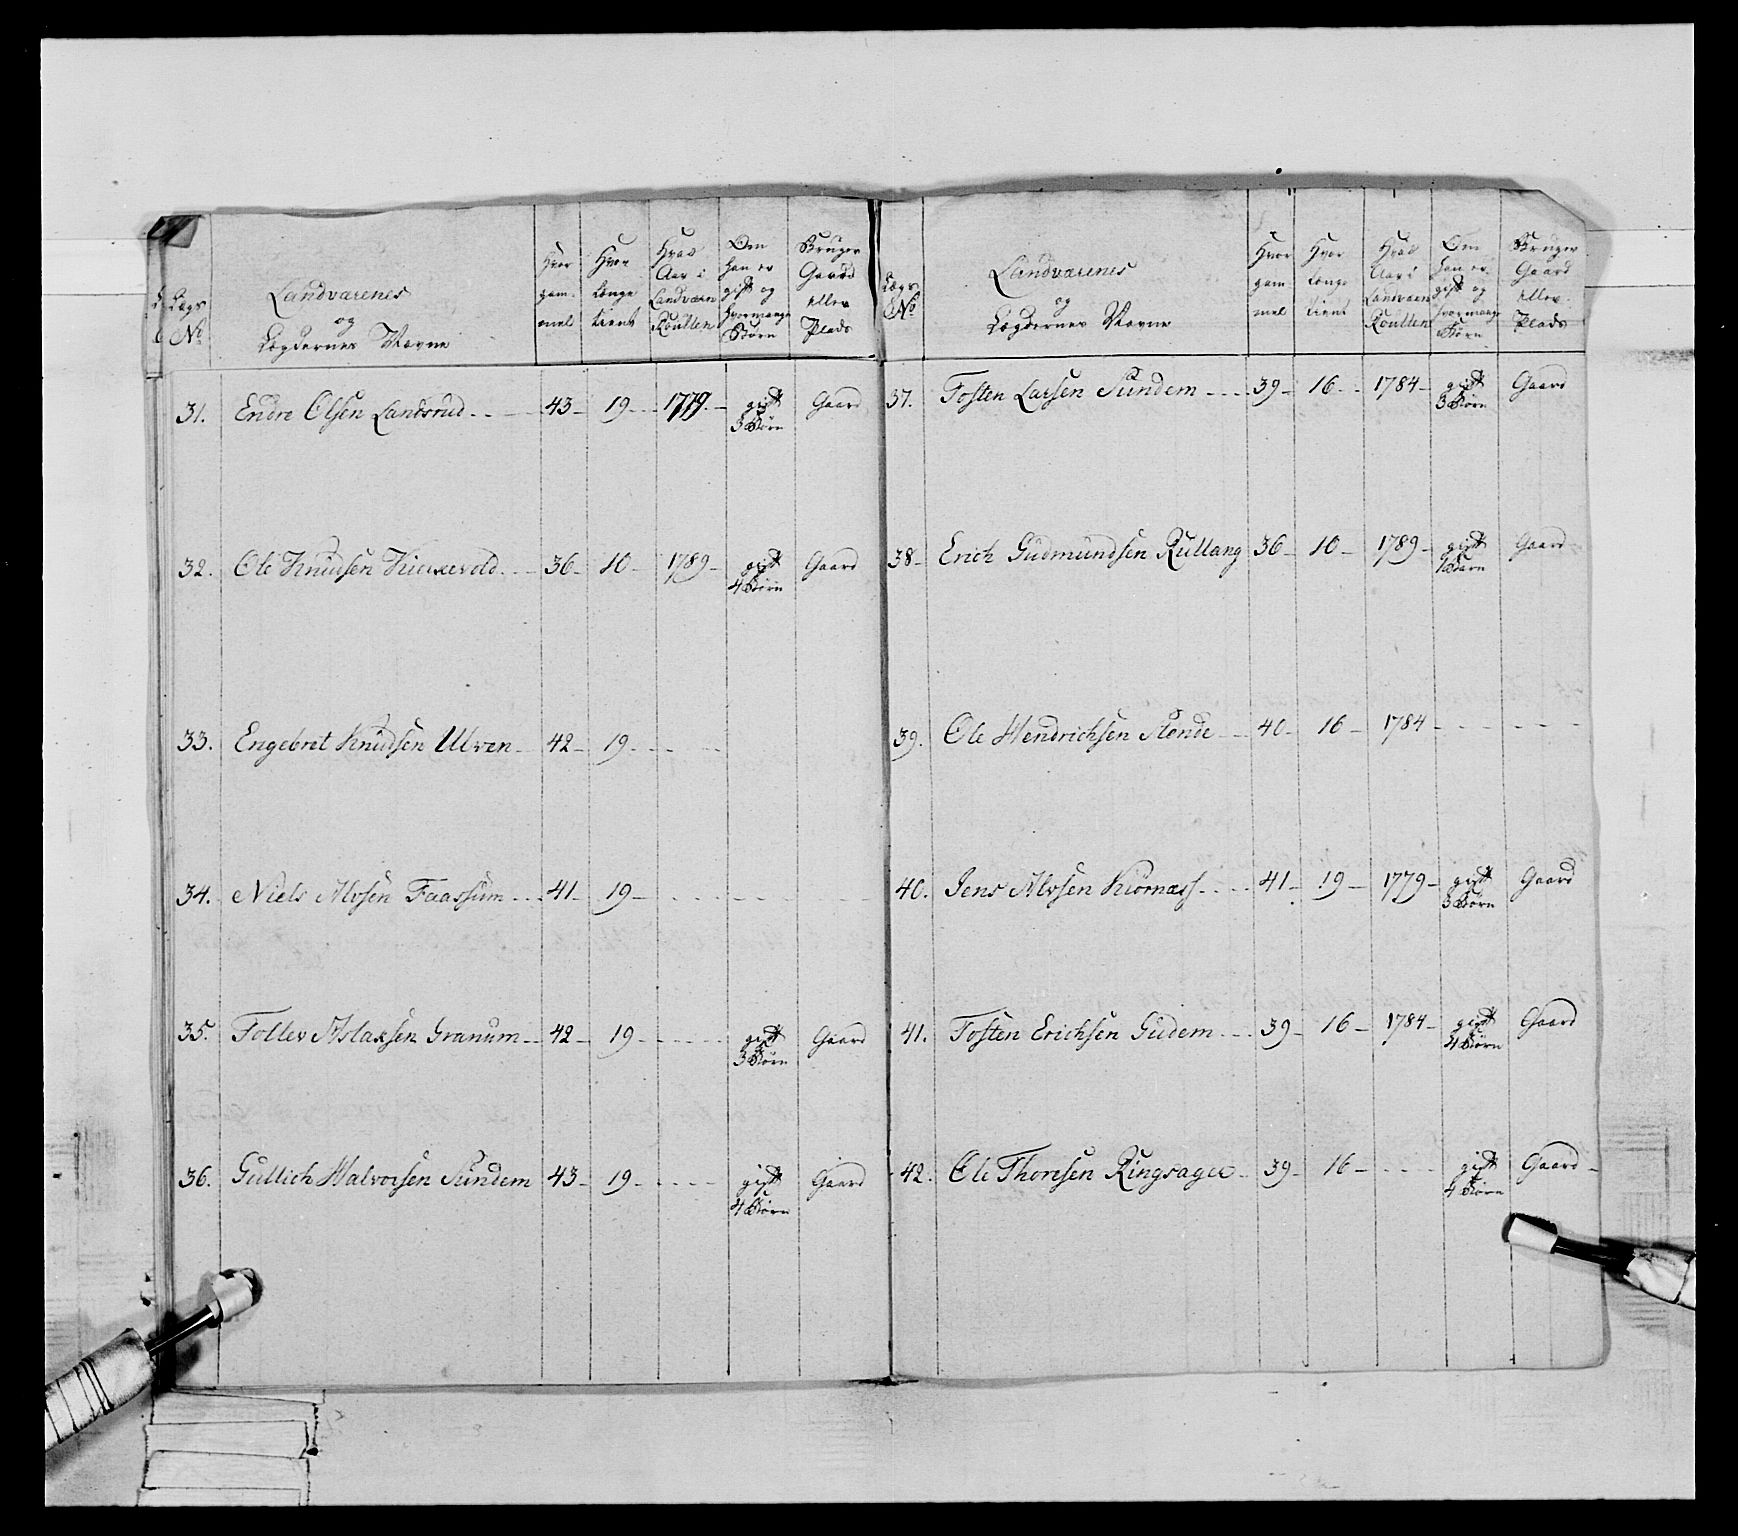 Lægs No
Landværenes og Lægdernes Navne
Hvor gam- mel
Hvor længe tient
Hvad Aar i Landværn Roullen
Om han er gift og hvormange Børn
Bruger Gaard eller Plads
31. Endre Olsen Landsrud - - 43 - 19 - - 1779. - gift 3 Børn Gaard
32. Ole Knudsen - - 36 - 10 - 1789 - gift 4 Børn Gaard
33. Engebret Knudsen Ulven - 42 - 19 - - - -
34. Niels Alvsen Faassum - - 41 - 19 - - - - -
35. Tollev Aslaksen Granum - - 42 - 19 - - - - gift 3 Børn Gaard
36. Gullich Halvorsen Sundem 43 - 19 - - - - gift 4 Børn Gaard
Lægs No
Landværenes og Lægdernes Navne
Hvor gam mel
Hvor længe tient
Hvad Aar i Landværn Roullen
Om han er gift og hvormange Børn
Bruger Gaard eller Plads
37. Tosten Larsen Sundem - - - 39 - 16 - - 1784 - gift 3 Børn Gaard
38 - Erich Gudmundsen Rullang 36 - 10 - 1789 - gift 1 Barn Gaard
39. Ole Hendrichsen Rønde - - 40 - 16 - 1784 - - - -
40. Jens Alvsen Kiørnæss - - - 41 - 19 - 1779 - gift 3 Børn Gaard
41. Tosten Erichsen Gudem - - - 39 - 16 - 1784 - gift 4 Børn Gaard
42. Ole Thoresen Ringsager - 39 - 16 - - - - gift 4 Børn Gaard -